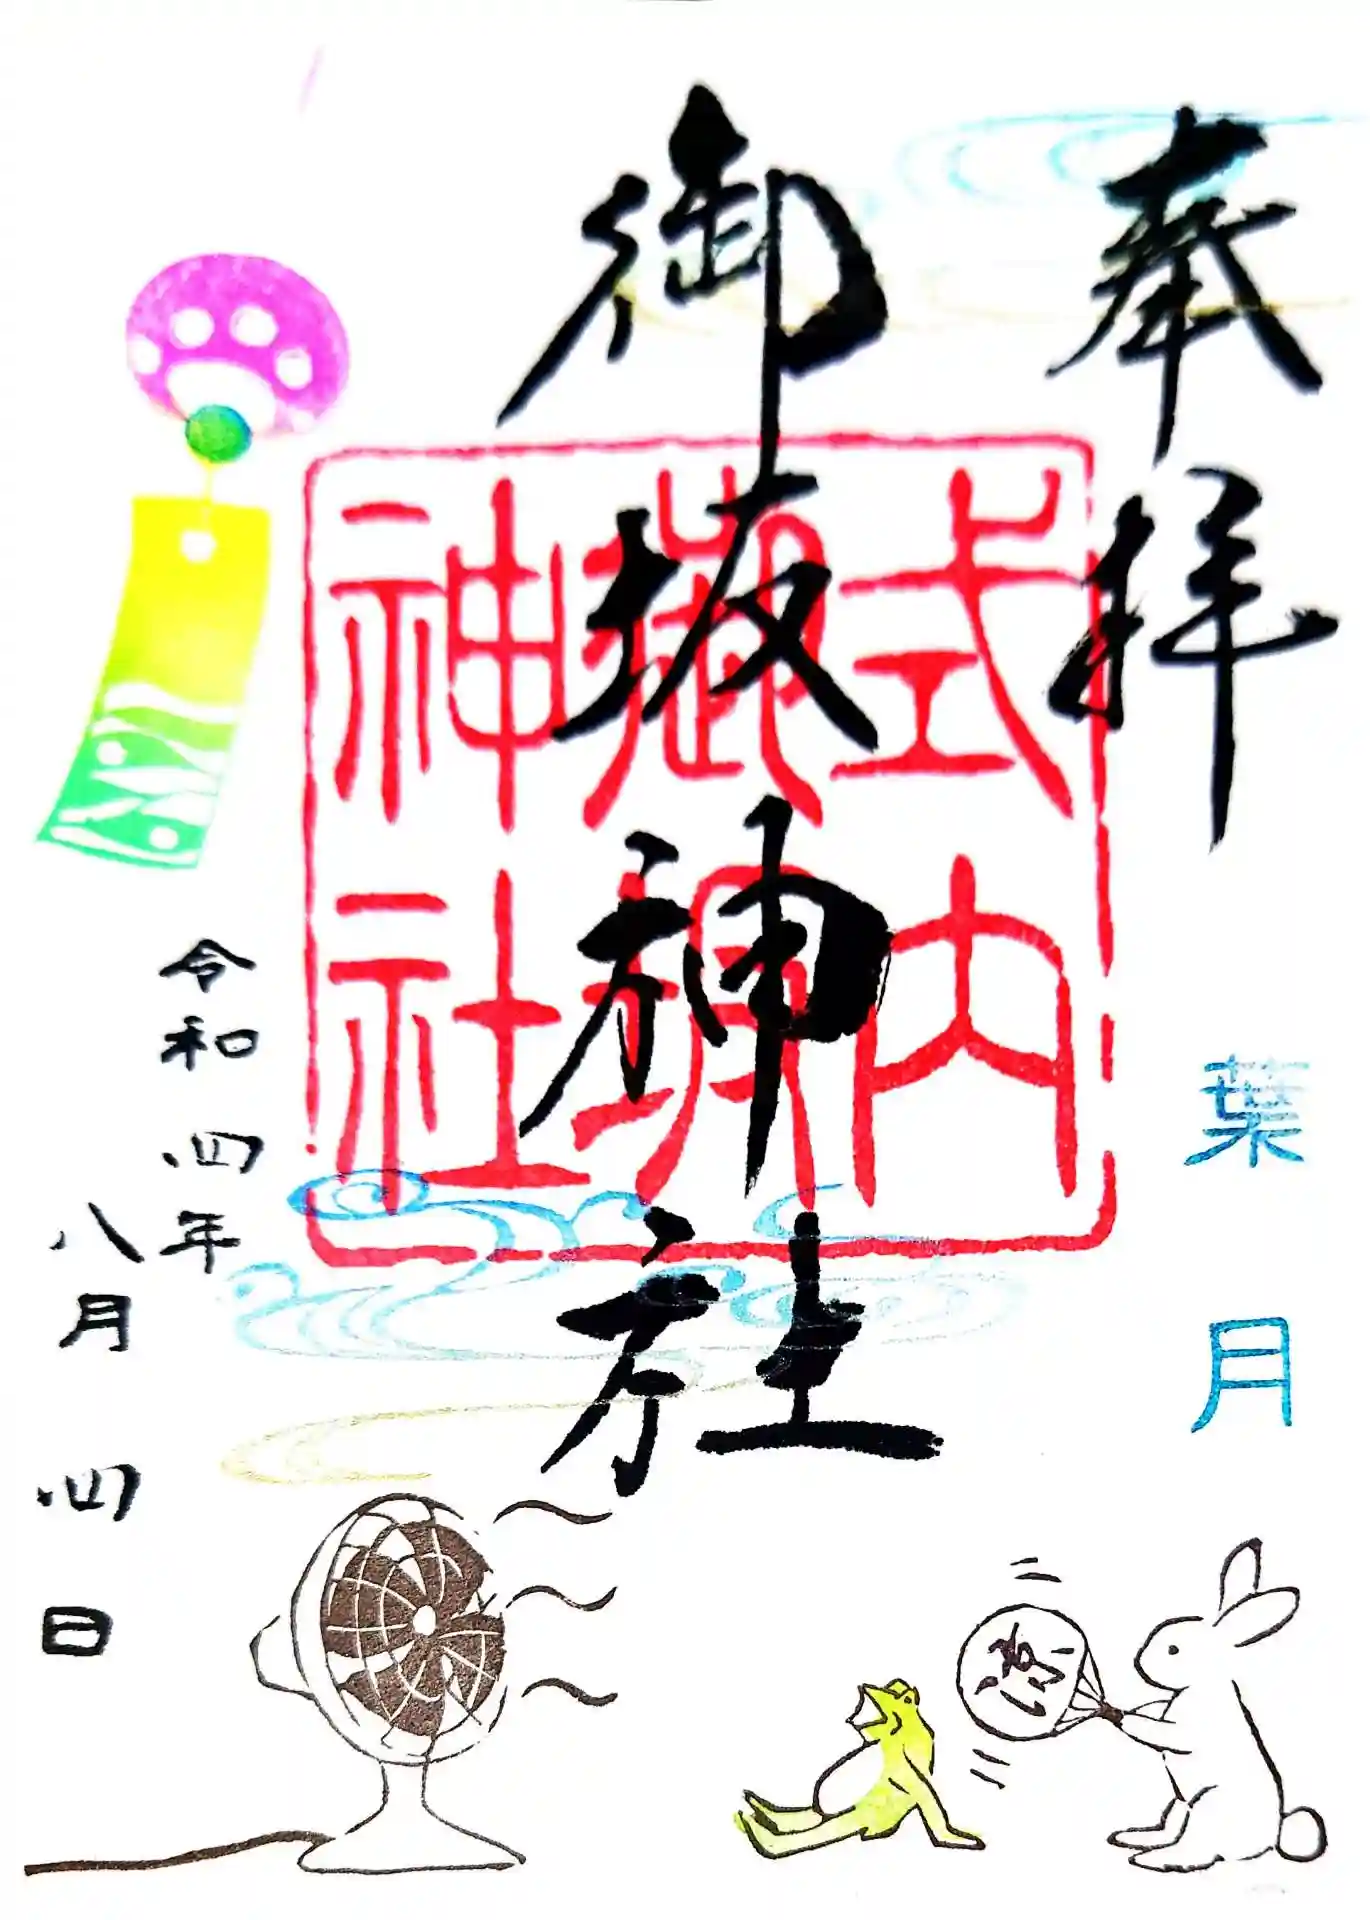 奉拝
葉月
御坂神社
式内
御坂
神社
令和四年
八月四日
涼